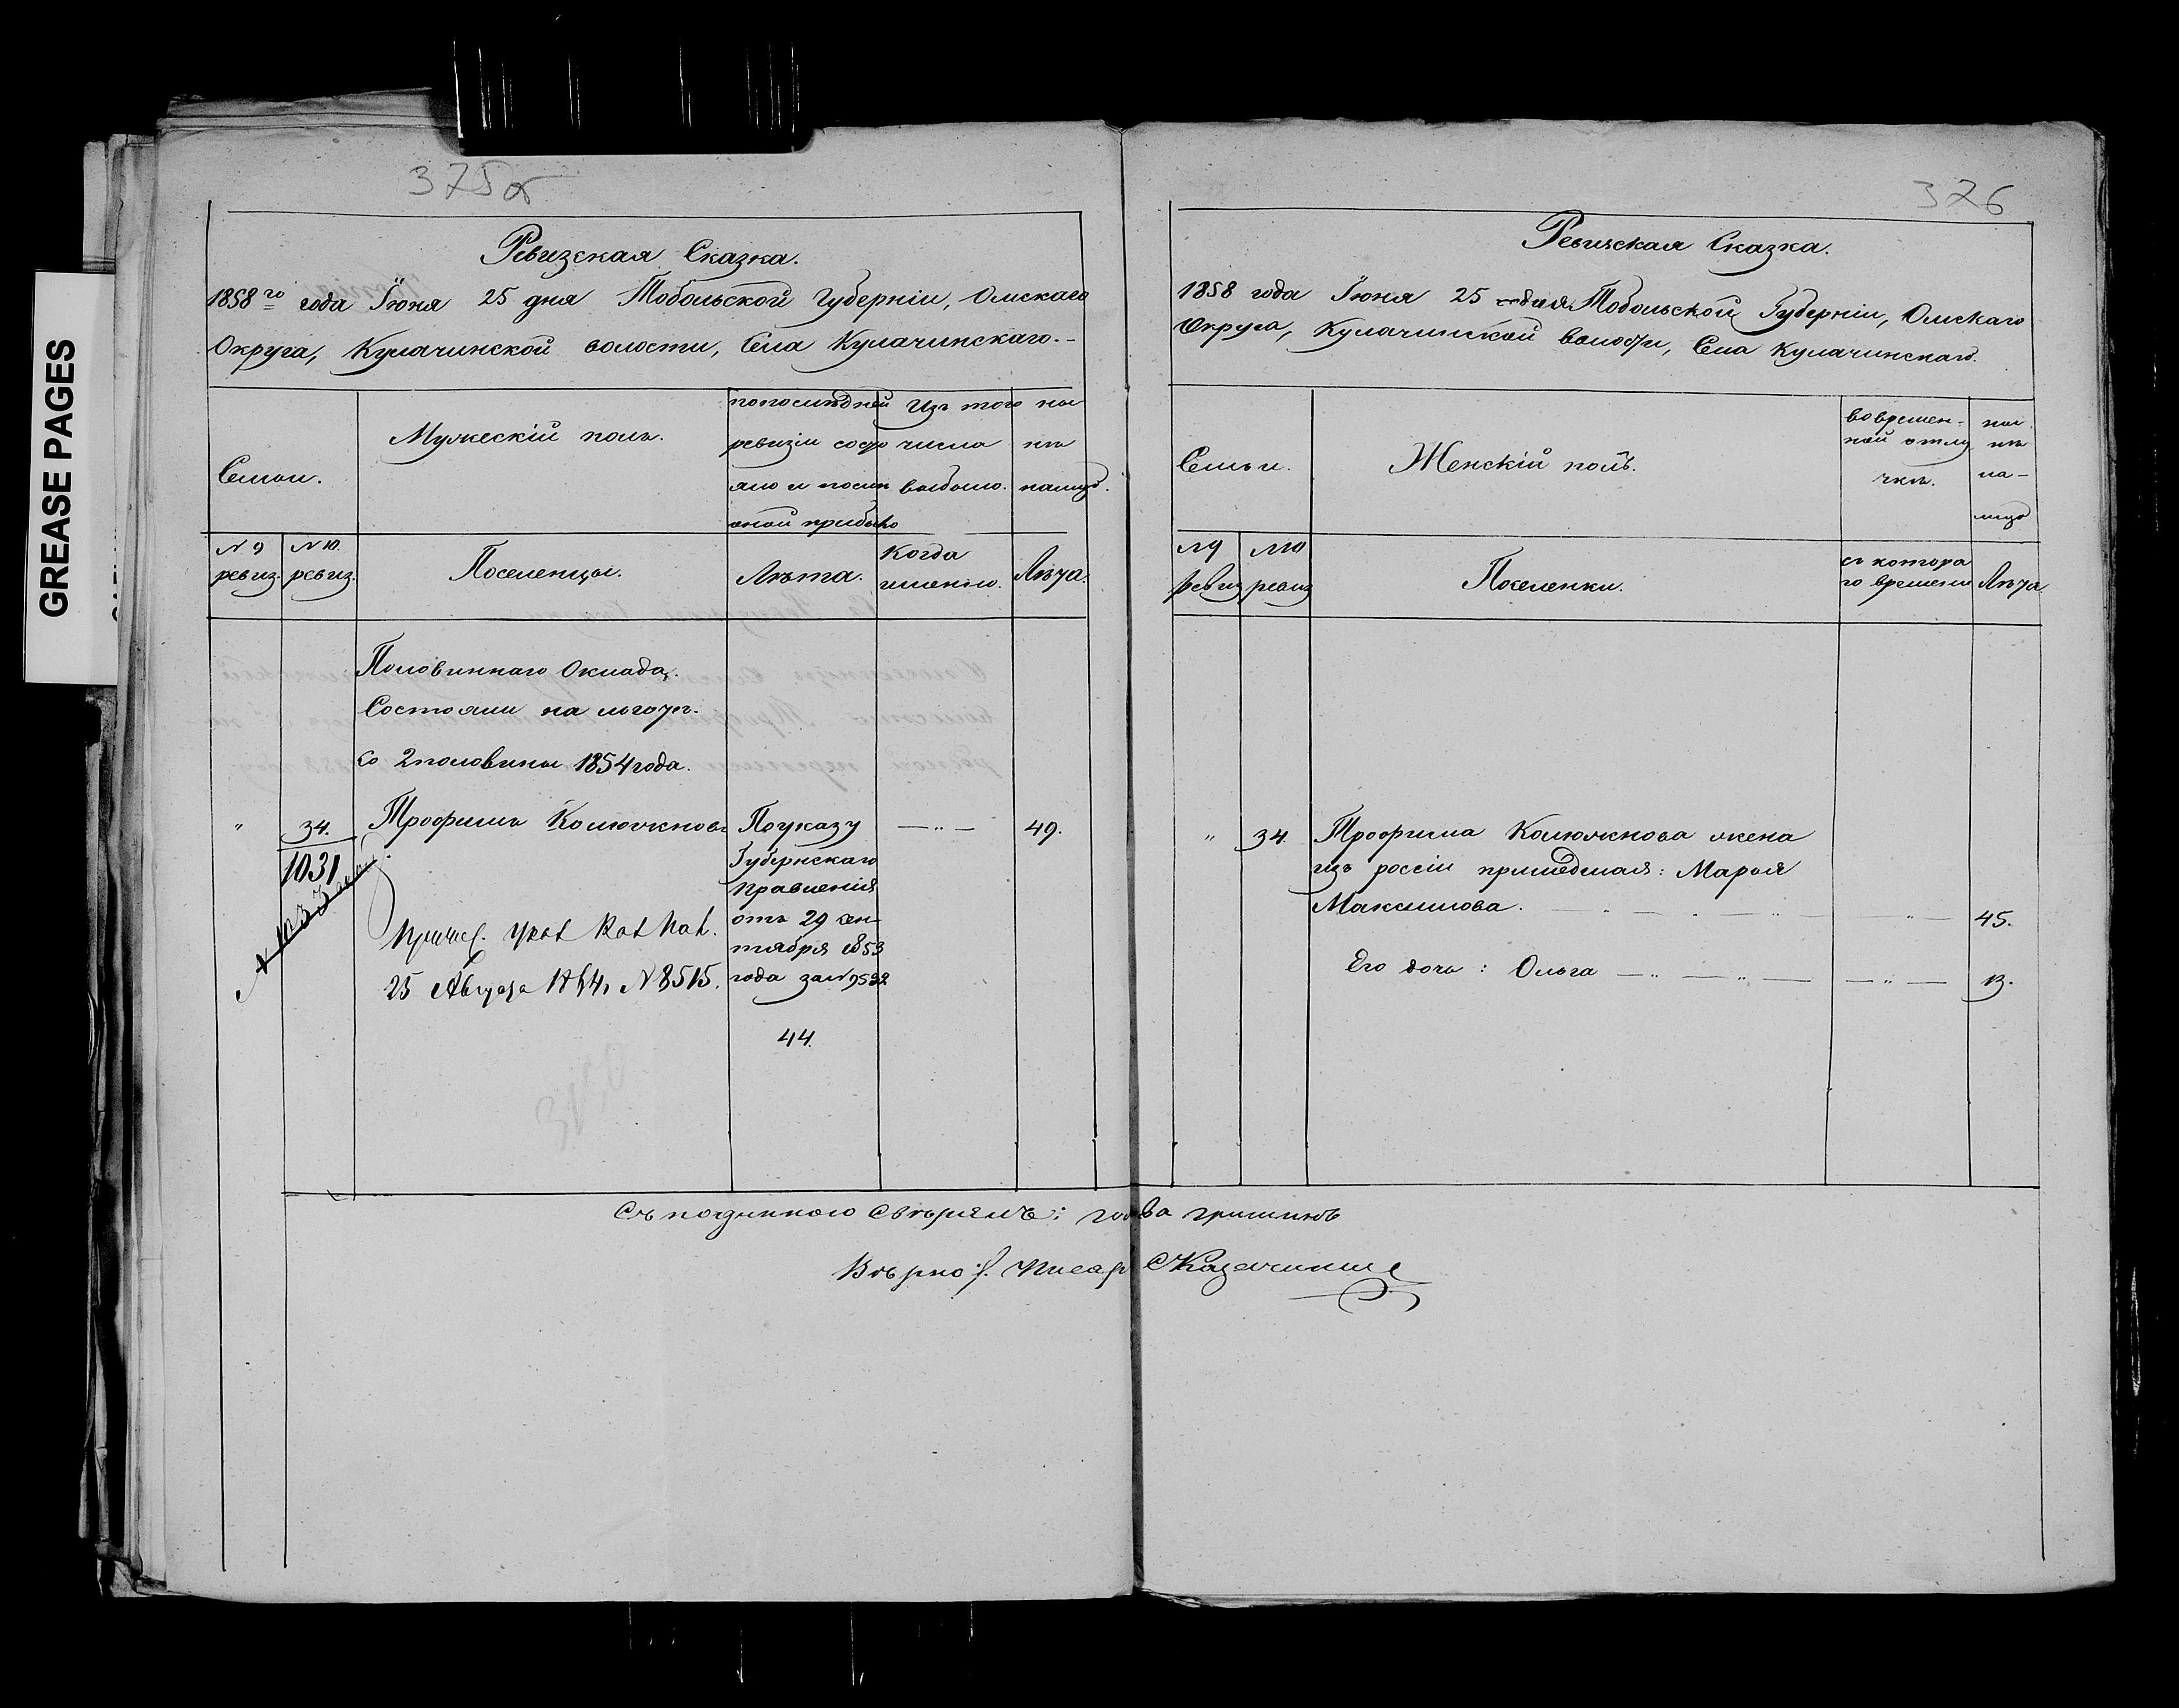 GREASE PAGES
375об
Ревизская Сказка.
1858го года Іюня 25 дня Тобольской Губерніи, Омскаго
Округа, Кулачинской волости, Села Кулачинскаго.-
Семьи.
Мужескій полъ.
попослѣдней
ревизіи состо
яло и послѣ
оной прибыло
Изъ того
числа
выбыло.
ны
нѣ
налицо.
№ 9
ревиз.
№ 10.
ревиз.
Поселенцы.
Лѣта.
Когда
именно.
Лѣта.
Половиннаго Оклада,
Состояли на льготѣ.
со 2 половины 1854 года.
" 34. Трофимъ Колюжновъ
1031
Причис.
25 Августа № 8515.
Поуказу
Губернскаго
Правленія
отъ 29 сен-
тября 1853
года за № 9532
44.
—"— 49.
376
Ревизская Сказка.
1858 года Іюня 25 дня Тобольской Губерніи, Омскаго
Округа, Кулачинской волости, Села Кулачинскаго.
Семьи.
Женскій полъ.
вовремен-
ной отлу
чкѣ.
ны
нѣ
на-
лицо
№9
ревиз
№10
ревиз
Поселенки.
съ котора
го времени
Лѣта
" 34. Трофима Колюжнова жена
изъ россіи пришедшая: Марья
Максимова. —"— 45.
Его дочь: Ольга —"— —"— —"— 13.
Съ подлиннаго Свѣрялъ: голова гришинъ
Вѣрно: Писарь